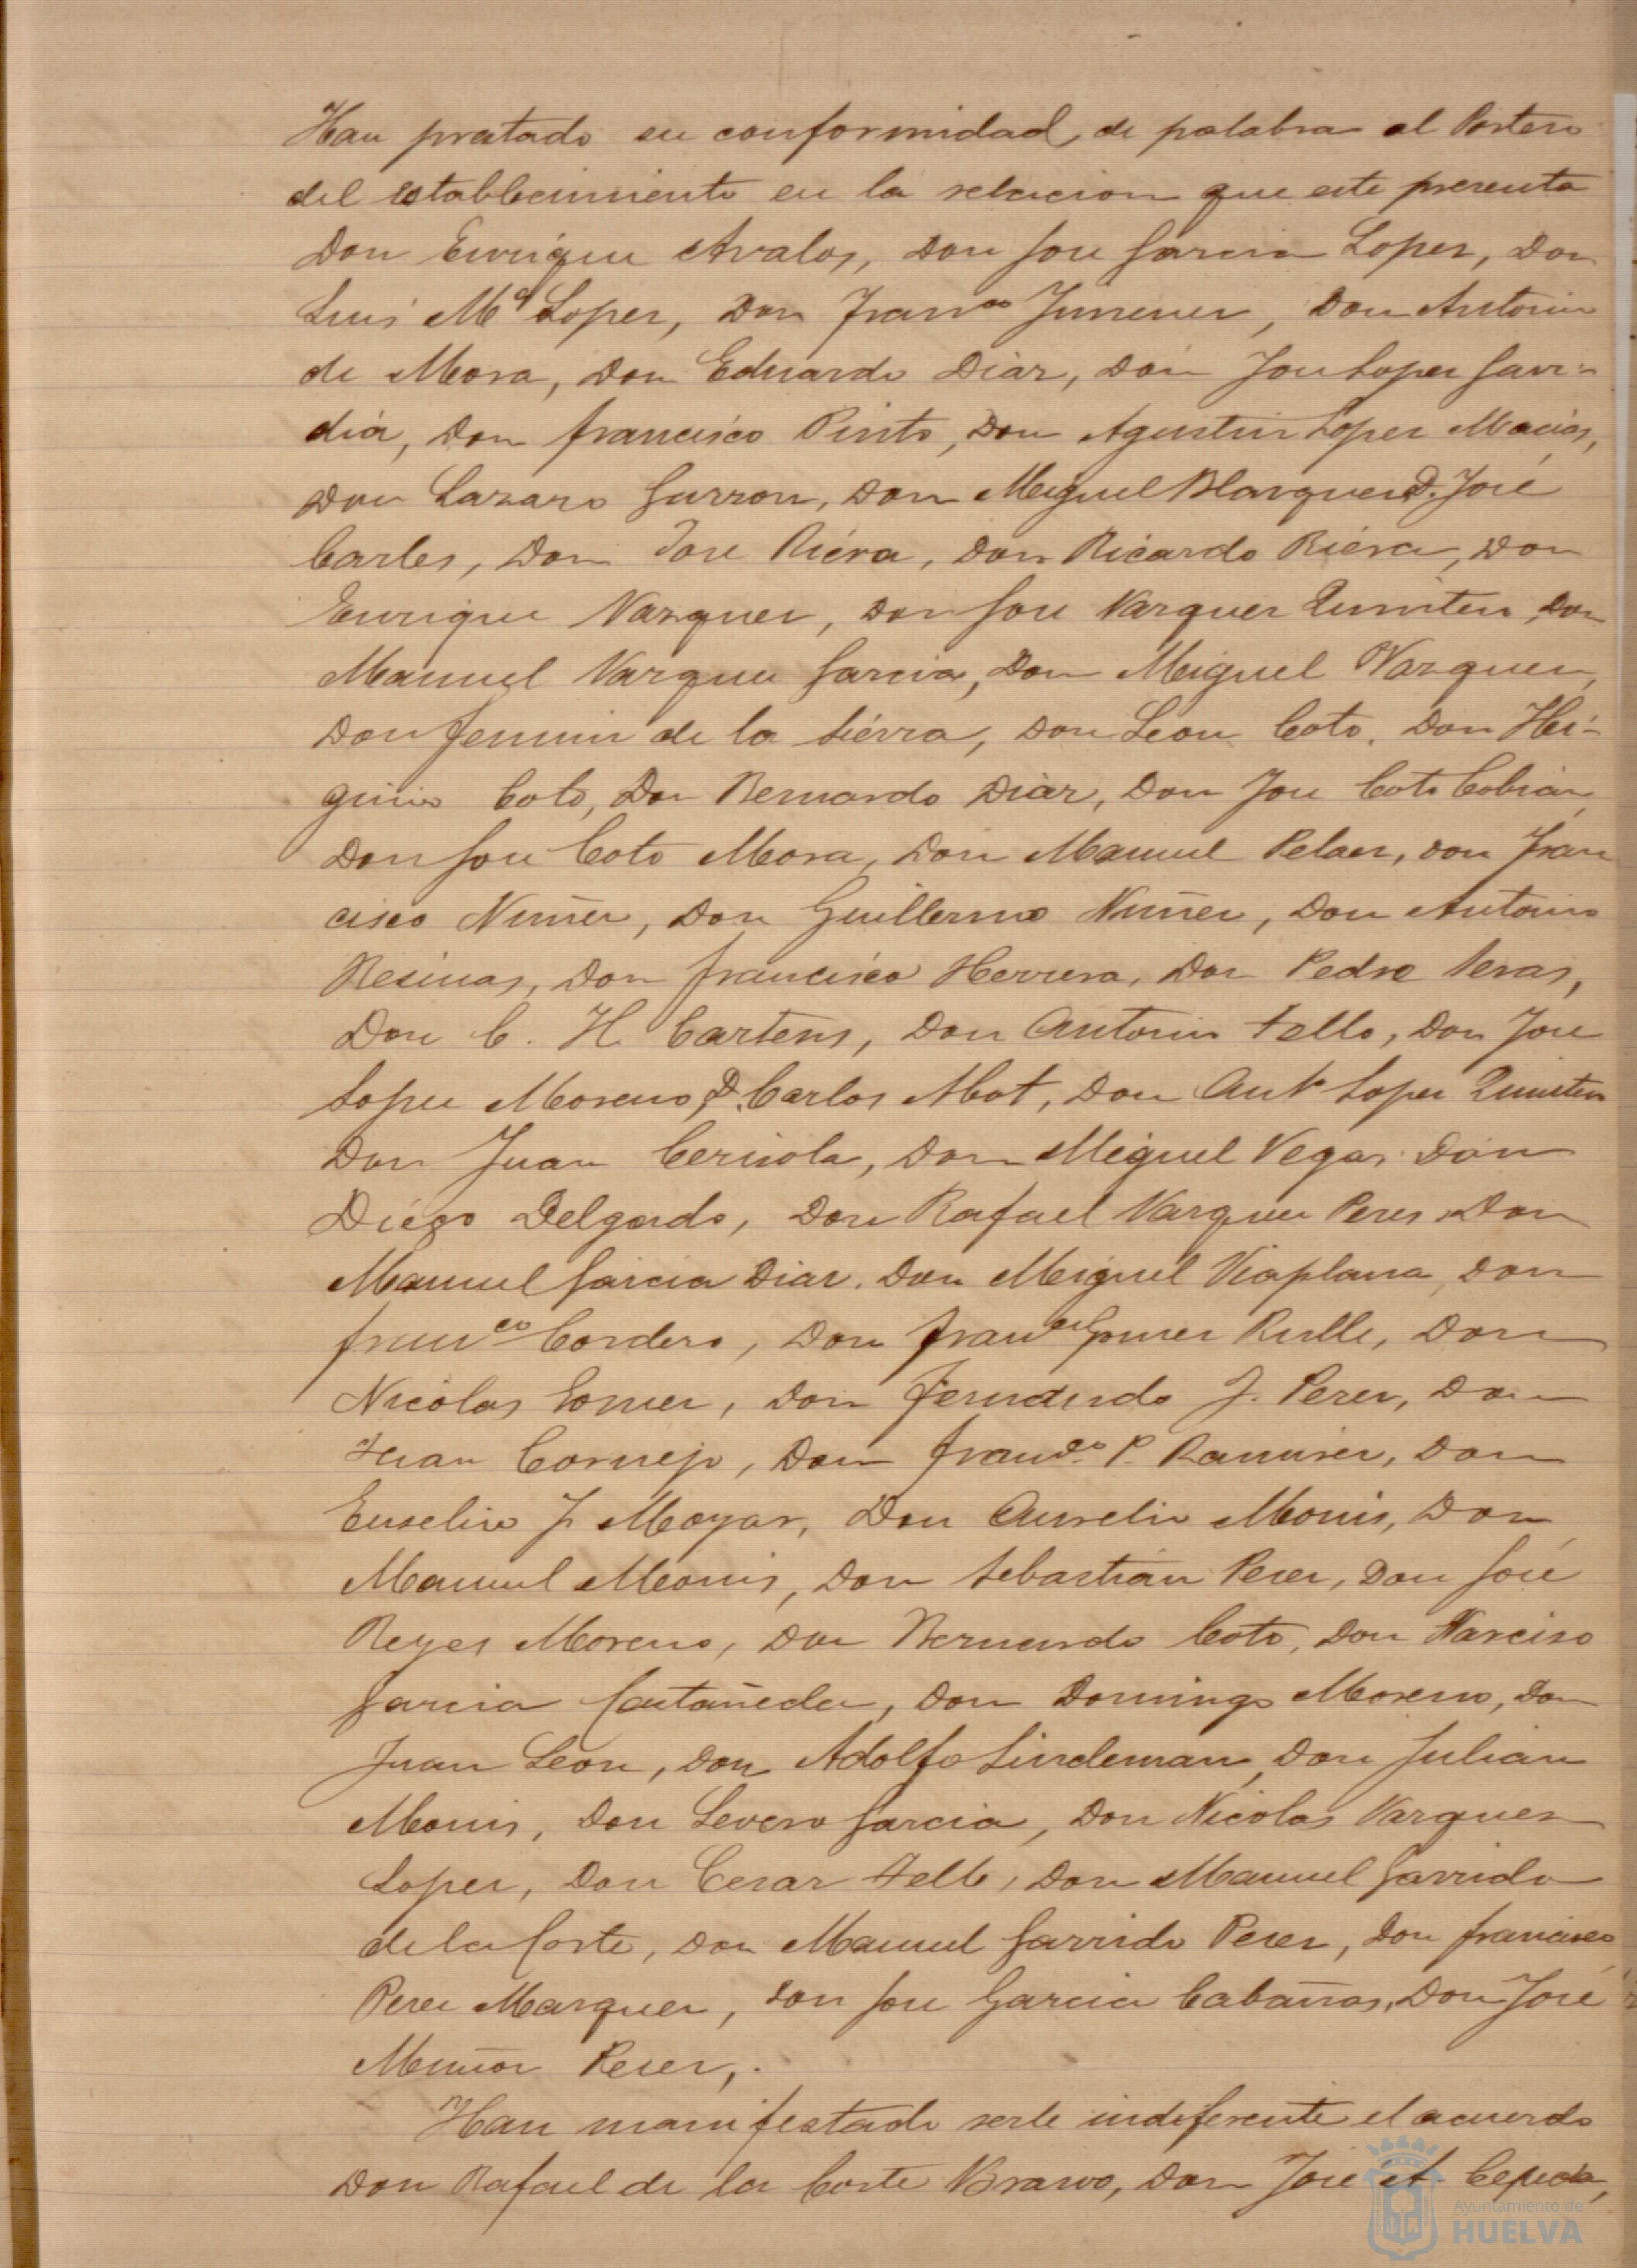 Han prestado su conformidad, de palabra al Portero
del establecimiento en la relacion que este presenta
Don Enrique Avalos, Don Jose Garcia Lopez, Don
Luis Mª Lopez, Don Franco Jimenez, Don Antonio
de Mora, Don Eduardo Diaz, Don Jose Lopez Gavi-
dia, Don Francisco Pinto, Don Agustin Lopez Macias,
Don Lazaro Garzon, Don Miguel Blazquez D. José
Carles, Don Jose Riera, Don Ricardo Riera, Don
Enrique Vazquez, Don Jose Vazquez Quintero, Don
Manuel Vazquez Garcia, Don Miguel Vazquez,
Don Fermin de la Sierra, Don Leon Coto, Don Hi-
ginio Coto, Don Bernardo Diaz, Don Jose Coto Cobian,
Don Jose Coto Mora, Don Manuel Pelaez, Don Fran
cisco Nuñez, Don Guillermo Nuñez, Don Antonio
Resinas, Don Francisco Herrera, Don Pedro Seras,
Don C. H. Cartens, Don Antonio Tello, Don Jose
Lopez Moreno, D. Carlos Mot, Don Antº Lopez Quintero
Don Juan Cerisola, Don Miguel Vega, Don
Diego Delgado, Don Rafael Vazquez Perez, Don
Manuel Garcia Diaz, Don Miguel Viaplana, Don
Franco Cordero, Don Franco Gomez Rulle, Don
Nicolas Gomez, Don Fernando J. Perez, Don
Juan Cornejo, Don Franco P. Ramirez, Don
Eusebio J. Moyar, Don Aurelio Monis, Don
Manuel Monis, Don Sebastian Perez, Don José
Reyes Moreno, Don Bernardo Coto, Don Narciso
Garcia Castañeda, Don Domingo Moreno, Don
Juan Leon, Don Adolfo Lindeman, Don Julian
Monis, Don Severo Garcia, Don Nicolas Vazquez
Lopez, Don Cesar Tello, Don Manuel Garrido
de la Corte, Don Manuel Garrido Perez, Don Francisco
Perez Marquez, Don Jose Garcia Cabañas, Don José
Muñoz Perez,.
Han manifestado serle indiferente el acuerdo
Don Rafael de la Corte Bravo, Don Jose A. Cepeda,
Ayuntamiento de
HUELVA